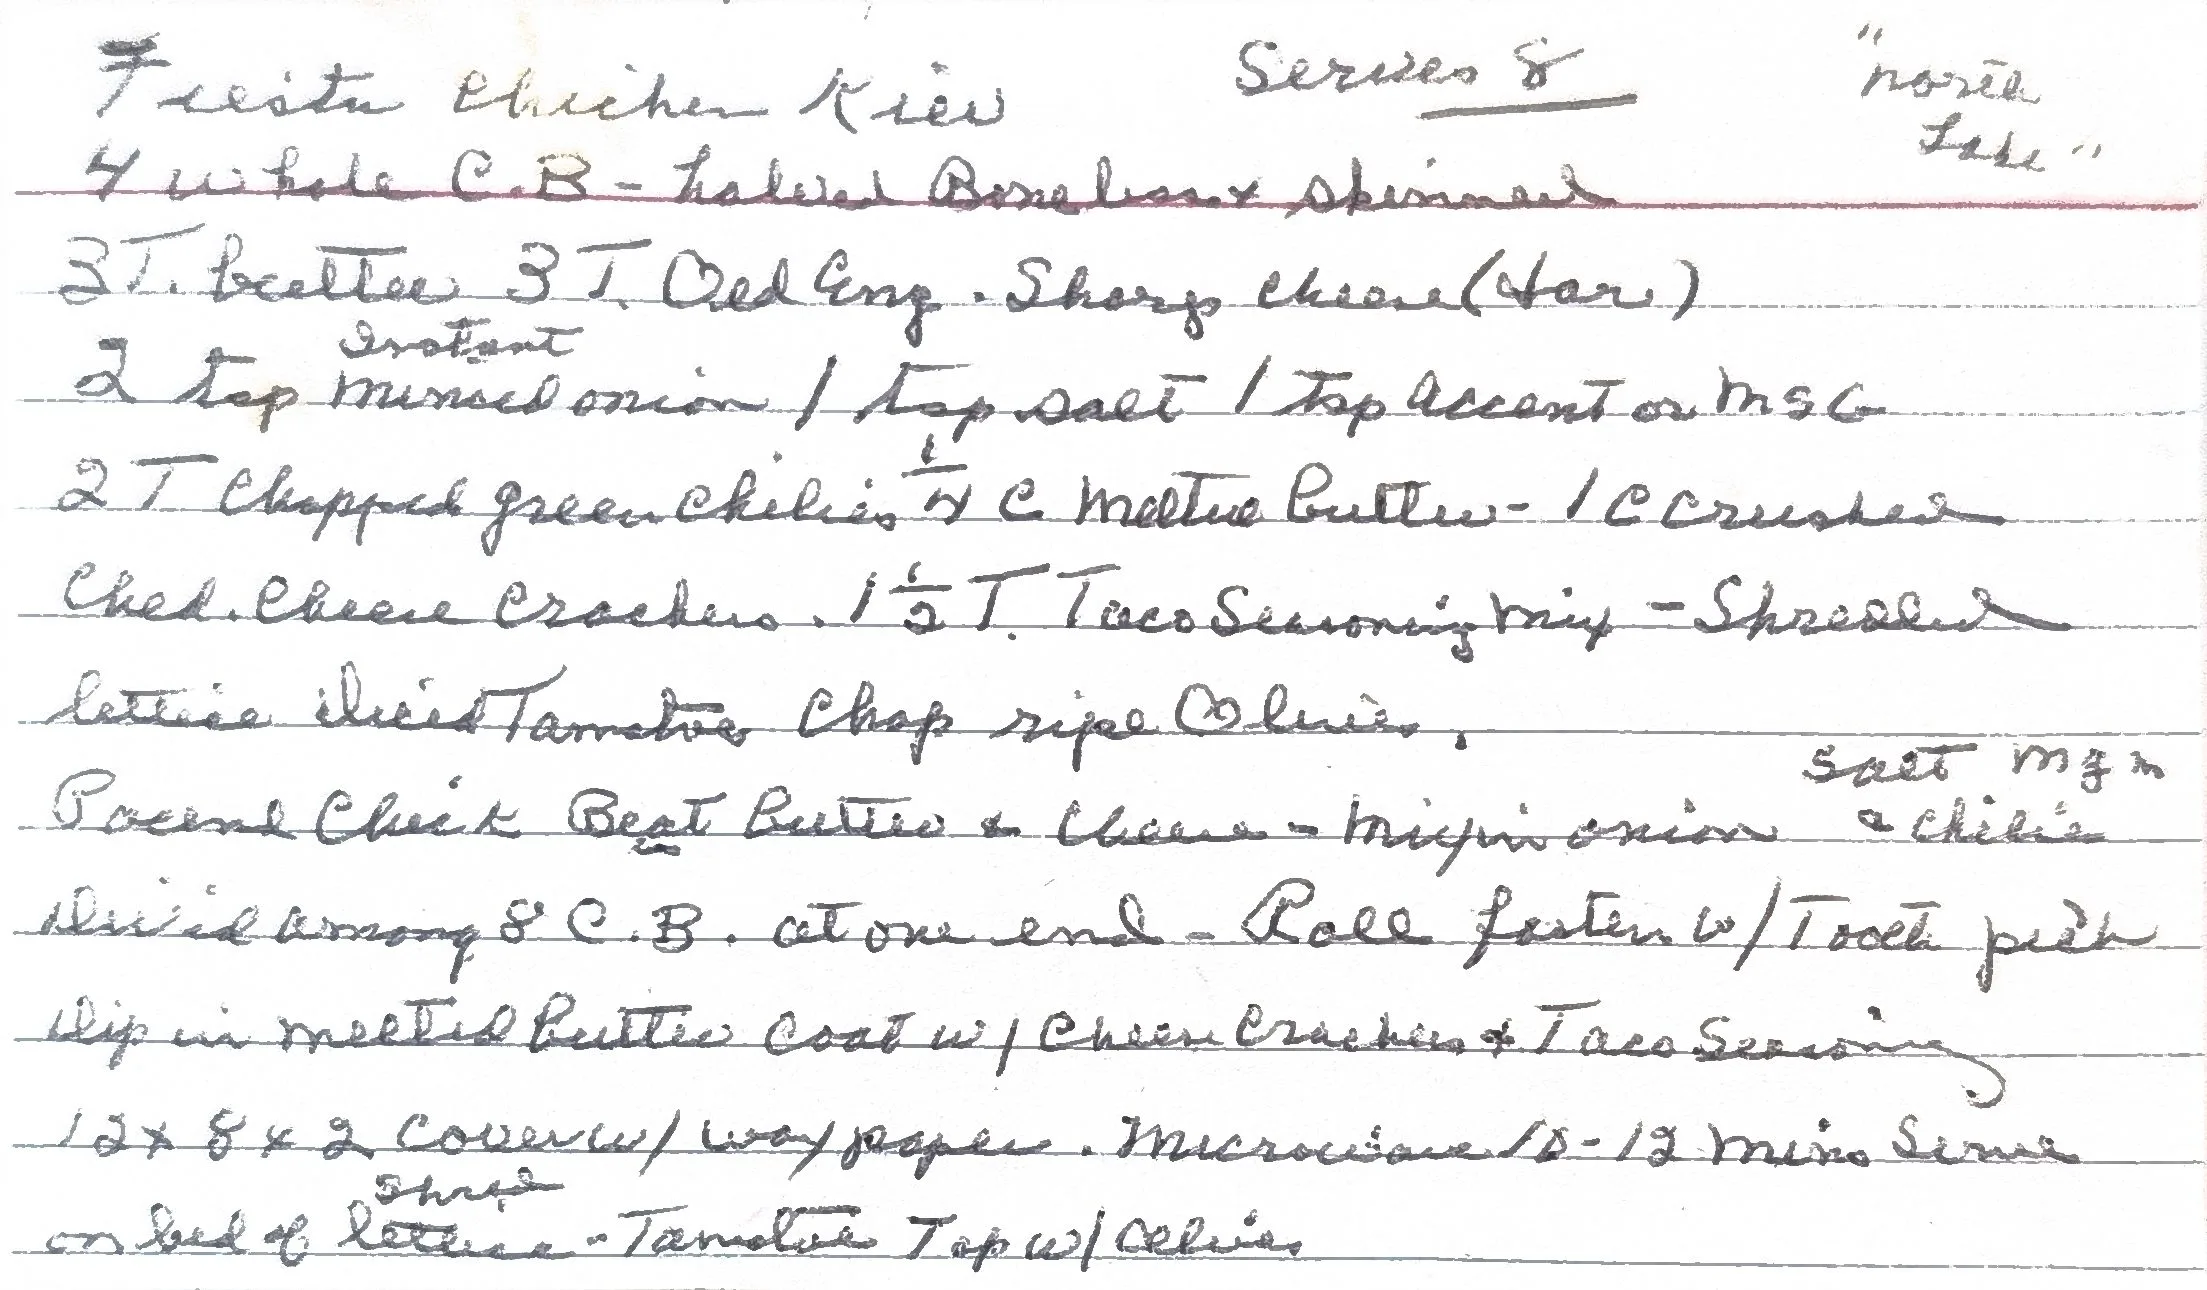 Fiesta Chicken Kiev Serves 8 "North
Lake"
4 whole C.B - halved Boneless & skinned
3T. butter 3 T. Old Eng. Sharp cheese (Jar)
Instant
2 tsp minced onion 1 tsp salt 1 tsp Accent or MSG
2 T Chopped green chilies 1/4 C melted butter - 1 C crushed
Ched. Cheese Crackers. 1 1/2 T. Taco Seasoning mix - Shredded
lettuce diced Tomatoes Chop ripe Olives.
salt
Pound Chick Beat butter & cheese - mix in onion & chilies
divid among 8 C.B. at one end - Roll fasten w/ Tooth pick
dip in melted butter coat w/ Cheese Crackers & Taco Seasoning
12 x 8 x 2 Cover w/ wax paper. Microwave 10-12 mins Serve
Shred
on bed of lettuce - Tomatoe Top w/ Olives